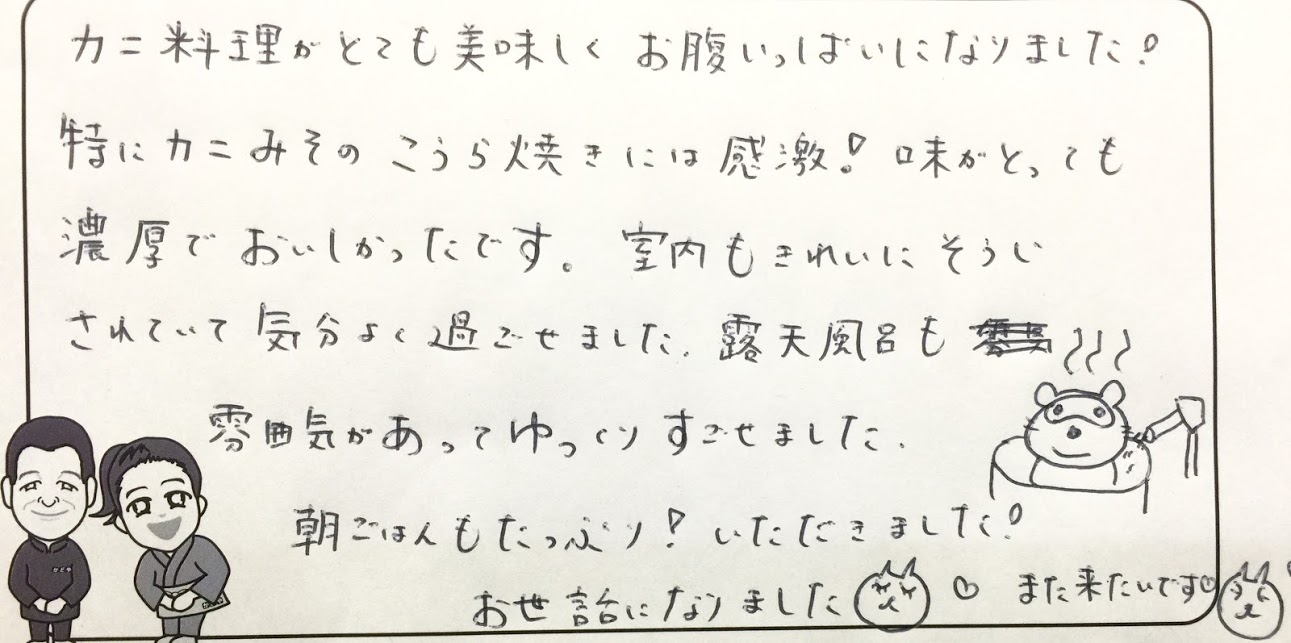 カニ料理がとても美味しく お腹いっぱいになりました!
特にカニみその こうら焼きには感激! 味がとっても
濃厚で おいしかったです。 室内もきれいに そうじ
されていて 気分よく過ごせました. 露天風呂も
雰囲気があって ゆっくり すごせました.
朝ごはんもたっぷり! いただきました!
お世話になりました ♡ また来たいです♡
かどや